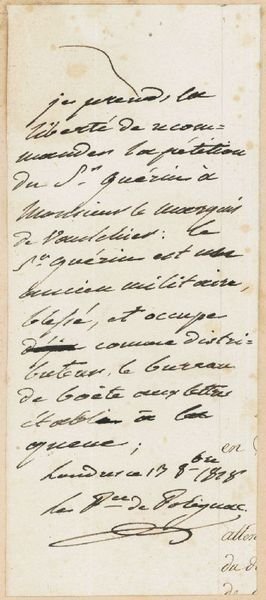 je prends la
liberté de recom=
mander la pétition
du Sr Guérin à
Monsieur le marquis
de Vaulchier: le
Sr Guérin est un
ancien militaire,
blessé, et occupe
comme distri=
buteur, le bureau
de boète aux lettres
établi à la
queue;
Londres ce 17 8bre 1828
le Pce de Polignac.
en
atten
du d